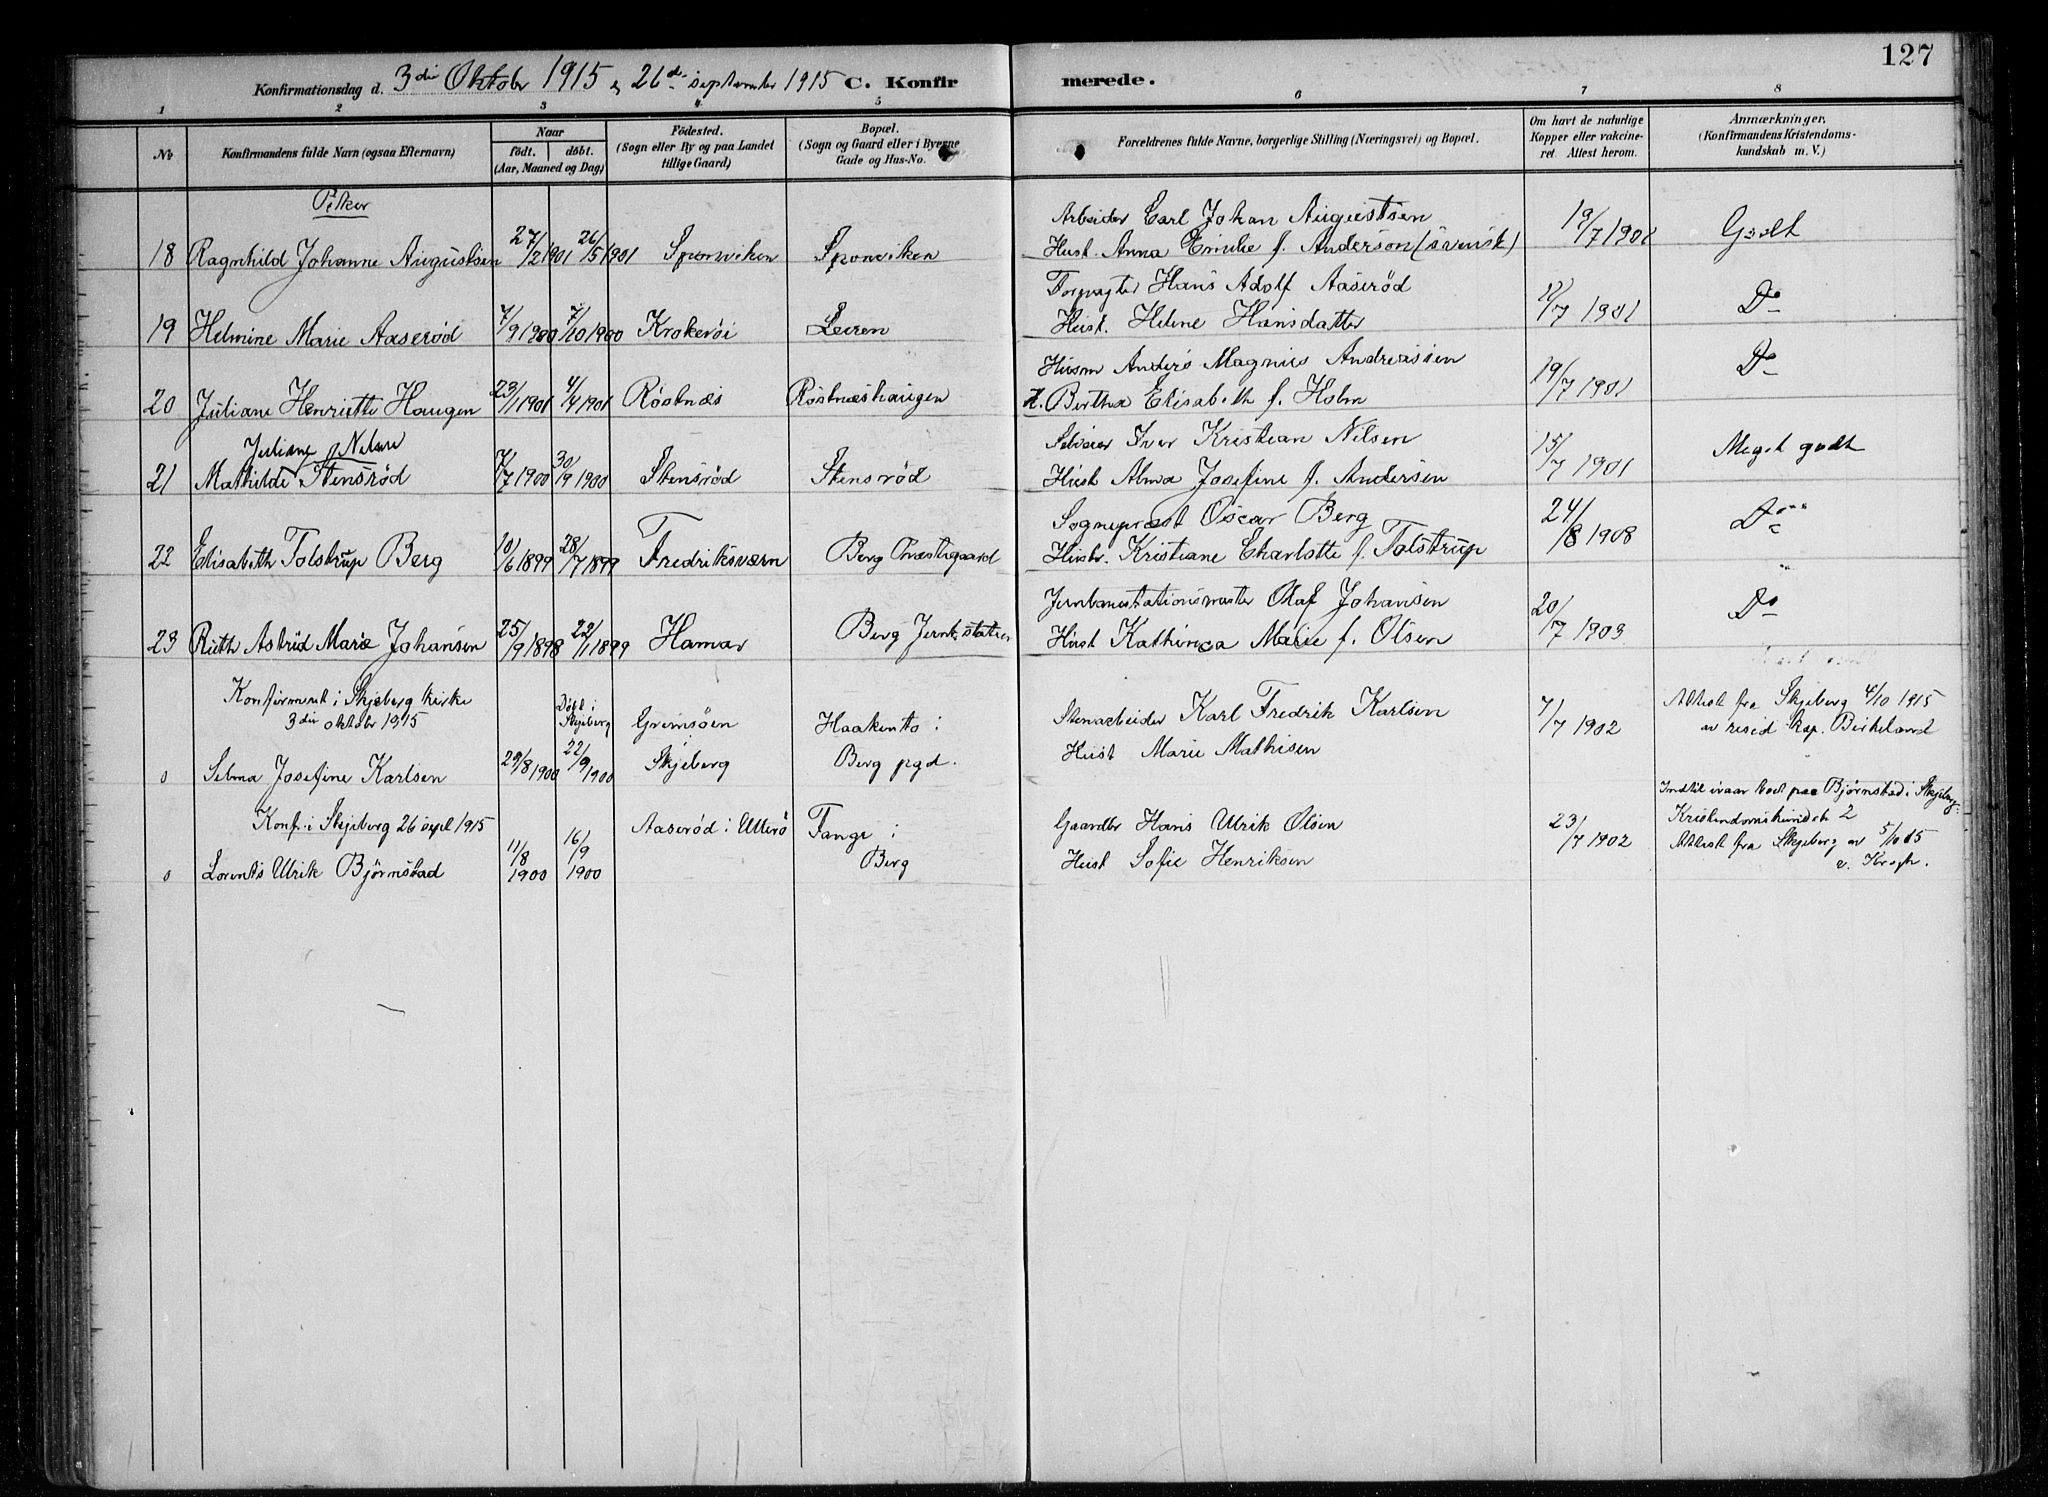 127
Konfirmationsdag d. 3die Oktober 1915 og 26d. september 1915 C. Konfirmerede.
1 2 3 4 5 6 7 8
No
Konfirmandens fulde Navn (ogsaa Efternavn)
Naar
födt. döbt.
(Aar, Maaned og Dag)
Födested.
(Sogn eller By og paa Landet
tillige Gaard)
Bopæl.
(Sogn og Gaard eller i Byerne
Gade og Hus-No.
Forældrenes fulde Navne, borgerlige Stilling (Næringsvei) og Bopæl.
Om havt de naturlige
Kopper eller vakcine-
ret Attest herom.
Anmærkninger,
(Konfirmandens Kristendoms-
kundskab m. V.)
Piker
Arbeider Carl Johan Augustsen
18 Ragnhild Johanne Augustsen 27/2 1901 26/5 1901 Sponviken Sponviken Hust. Anna Emilie f. Anderson (svensk) 19/7 1901 Godt
Forpagter Hans Adolf Aaserød
19 Helmine Marie Aaserød 7/9 1900 7/10 1900 Krokerøi Leiren Hust. Helene Hansdatter 17/7 1901 Do
Husm Anders Magnus Andreassen
20 Juliane Henriette Haugen 23/1 1901 4/4 1901 Røstnæs Røstnæshaugen H. Bertha Elisabeth f. Holm 19/7 1901 Do
Juliane Nilsen
Selveier Iver Kristian Nilsen
21 Mathilde Stensrød 7/7 1900 30/9 1900 Stensrød Stensrød Hust Alma Josefine f. Andersen 15/7 1901 Meget godt
Sogneprest Oscar Berg
22 Elisabeth Tolstrup Berg 10/6 1899 28/7 1899 Fredriksværn Berg Præstegaard Hustr. Kristiane Charlotte f. Tolstrup 24/8 1908 Do
Jernbanestationsmester Olaf Johansen
23 Ruth Astrid Marie Johansen 25/9 1898 22/1 1899 Hamar Berg Jernb. station Hust Kathinca Marie f. Olsen 20/7 1903 Do
Konfirmeret i Skjeberg kirke
3die oktober 1915
Døbt i
Skjeberg
Grimsöen Haakentto i Stenarbeider Karl Fredrik Karlsen 7/7 1902 Attest fra Skjeberg 4/10 1915
av resid. Kap. Birkeland
0 Selma Josefine Karlsen 29/8 1900 22/9 1900 Skjeberg Berg pgd. Hust Marie Mathisen
Indtil ivaar bodt paa Bjørnstad i Skjeberg.
Konf. i Skjeberg 26 sept 1915 Aaserød i Ullerö Tange i Gaardbr Hans Ulrik Olsen 23/7 1902 Kristendomskundsk 2
Attest fra Skjeberg av 5/10 15
0 Lorents Ulrik Bjørnstad 11/8 1900 16/9 1900 Berg Hust Sofie Henriksen v. Krogh.